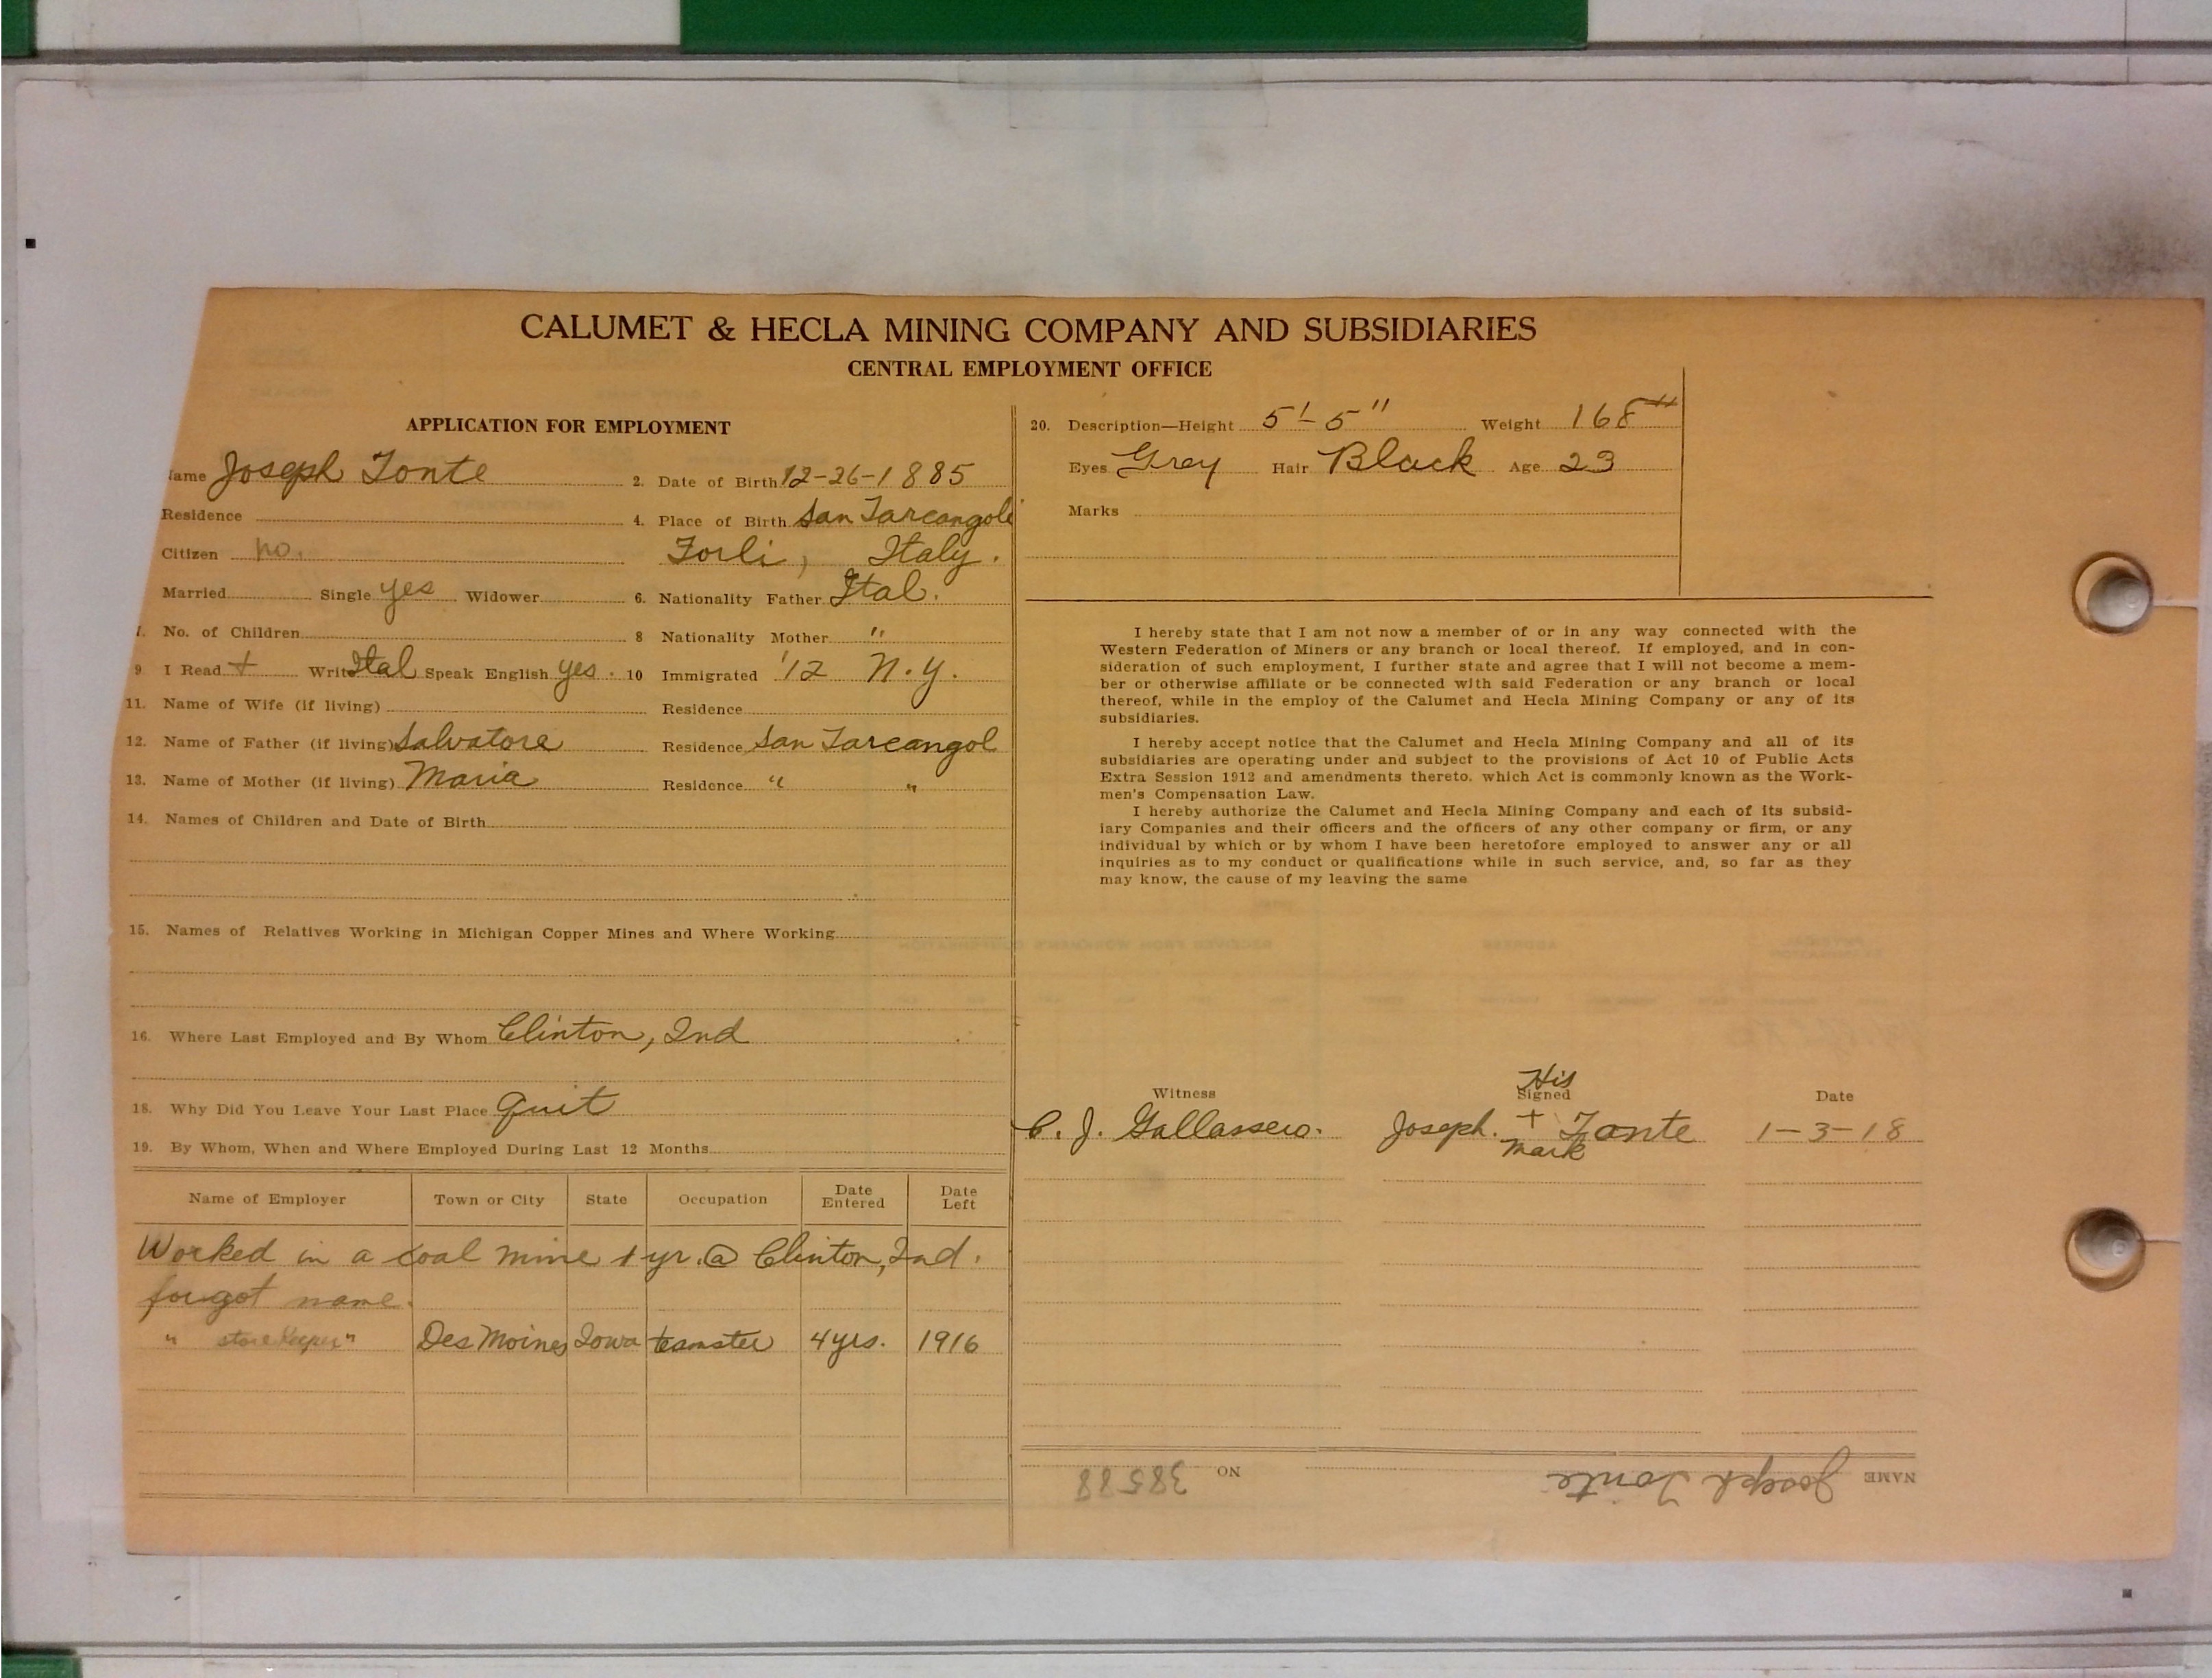 CALUMET & HECLA MINING COMPANY AND SUBSIDIARIES
CENTRAL EMPLOYMENT OFFICE
APPLICATION FOR EMPLOYMENT
Name Joseph Fonte 2. Date of Birth 12-26-1885
Residence 4. Place of Birth San Tarcangole
Citizen no. Forli, Italy.
Married Single yes Widower 6. Nationality Father Ital.
7. No. of Children 8 Nationality Mother "
9 I Read + Write Ital Speak English yes. 10 Immigrated '12 N.Y.
11. Name of Wife (if living) Residence
12. Name of Father (if living) Salvatore Residence San Tarcangol
13. Name of Mother (if living) Maria Residence " "
14. Names of Children and Date of Birth
15. Names of Relatives Working in Michigan Copper Mines and Where Working
16. Where Last Employed and By Whom Clinton, Ind
18. Why Did You Leave Your Last Place quit
19. By Whom, When and Where Employed During Last 12 Months
Name of Employer Town or City State Occupation Date Entered Date Left
Worked in a coal mine 1 yr. @ Clinton, Ind.
forgot name.
" storekeeper" Des Moines Iowa teamster 4 yrs. 1916
20. Description—Height 5'-5" Weight 168#
Eyes Grey Hair Black Age 23
Marks
I hereby state that I am not now a member of or in any way connected with the
Western Federation of Miners or any branch or local thereof. If employed, and in con-
sideration of such employment, I further state and agree that I will not become a mem-
ber or otherwise affiliate or be connected with said Federation or any branch or local
thereof, while in the employ of the Calumet and Hecla Mining Company or any of its
subsidiaries.
I hereby accept notice that the Calumet and Hecla Mining Company and all of its
subsidiaries are operating under and subject to the provisions of Act 10 of Public Acts
Extra Session 1912 and amendments thereto, which Act is commonly known as the Work-
men's Compensation Law.
I hereby authorize the Calumet and Hecla Mining Company and each of its subsid-
iary Companies and their officers and the officers of any other company or firm, or any
individual by which or by whom I have been heretofore employed to answer any or all
inquiries as to my conduct or qualifications while in such service, and, so far as they
may know, the cause of my leaving the same
His
Witness Signed Date
C. J. Gallassero. Joseph. + Fonte 1-3-18
mark
NAME Joseph Fonte NO 38588